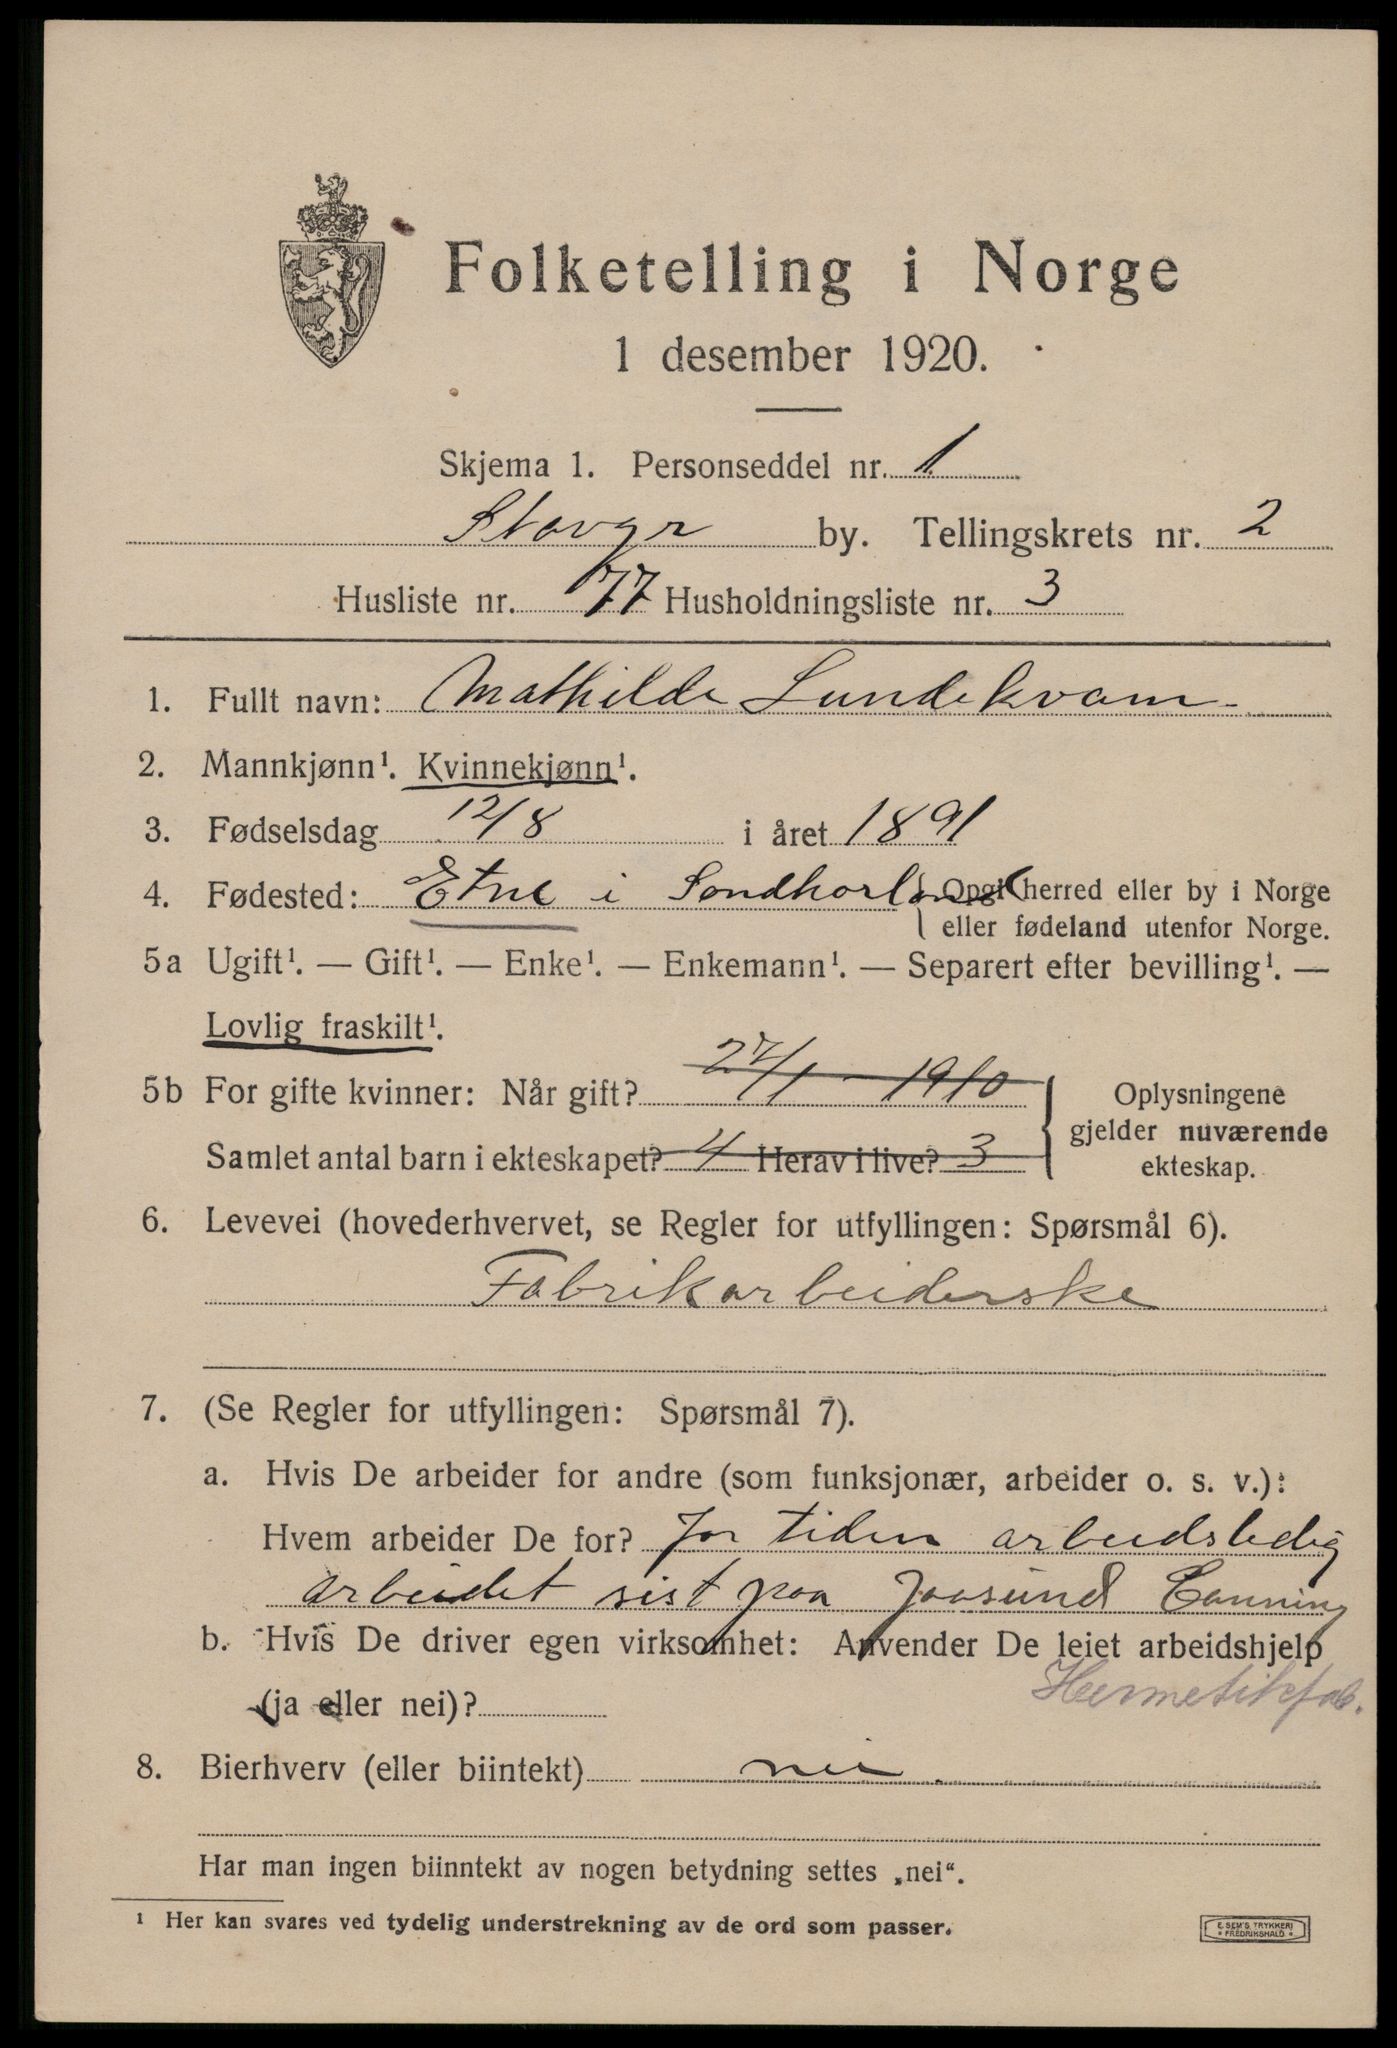 Folketelling i Norge
1 desember 1920.
Skjema 1. Personseddel nr. 1
Stavgr by. Tellingskrets nr. 2
Husliste nr. 77 Husholdningsliste nr. 3
1. Fullt navn: Mathilde Lundekvam
2. Mannkjønn¹. Kvinnekjønn¹.
3. Fødselsdag 12/8 i året 1891
4. Fødested: Etne i Söndhorland { Opgi herred eller by i Norge
eller fødeland utenfor Norge.
5a Ugift¹. — Gift¹. — Enke¹. — Enkemann¹. — Separert efter bevilling¹. —
Lovlig fraskilt¹.
5b For gifte kvinner: Når gift? 27/1 - 1910
Samlet antal barn i ekteskapet? 4 Herav i live? 3
Oplysningene
gjelder nuværende
ekteskap.
6. Levevei (hovederhvervet, se Regler for utfyllingen: Spørsmål 6).
Fabrikarbeiderske
7. (Se Regler for utfyllingen: Spørsmål 7).
a. Hvis De arbeider for andre (som funksjonær, arbeider o. s. v.):
Hvem arbeider De for? for tiden arbeidsledig
arbeidet sist paa Jaasund Canning
b. Hvis De driver egen virksomhet: Anvender De leiet arbeidshjelp
Hermetikfab.
(ja eller nei)?
8. Bierhverv (eller biintekt) nei.
Har man ingen biinntekt av nogen betydning settes „nei“.
¹ Her kan svares ved tydelig understrekning av de ord som passer.
E. SEM'S TRYKKERI
* FREDRIKSHALD *